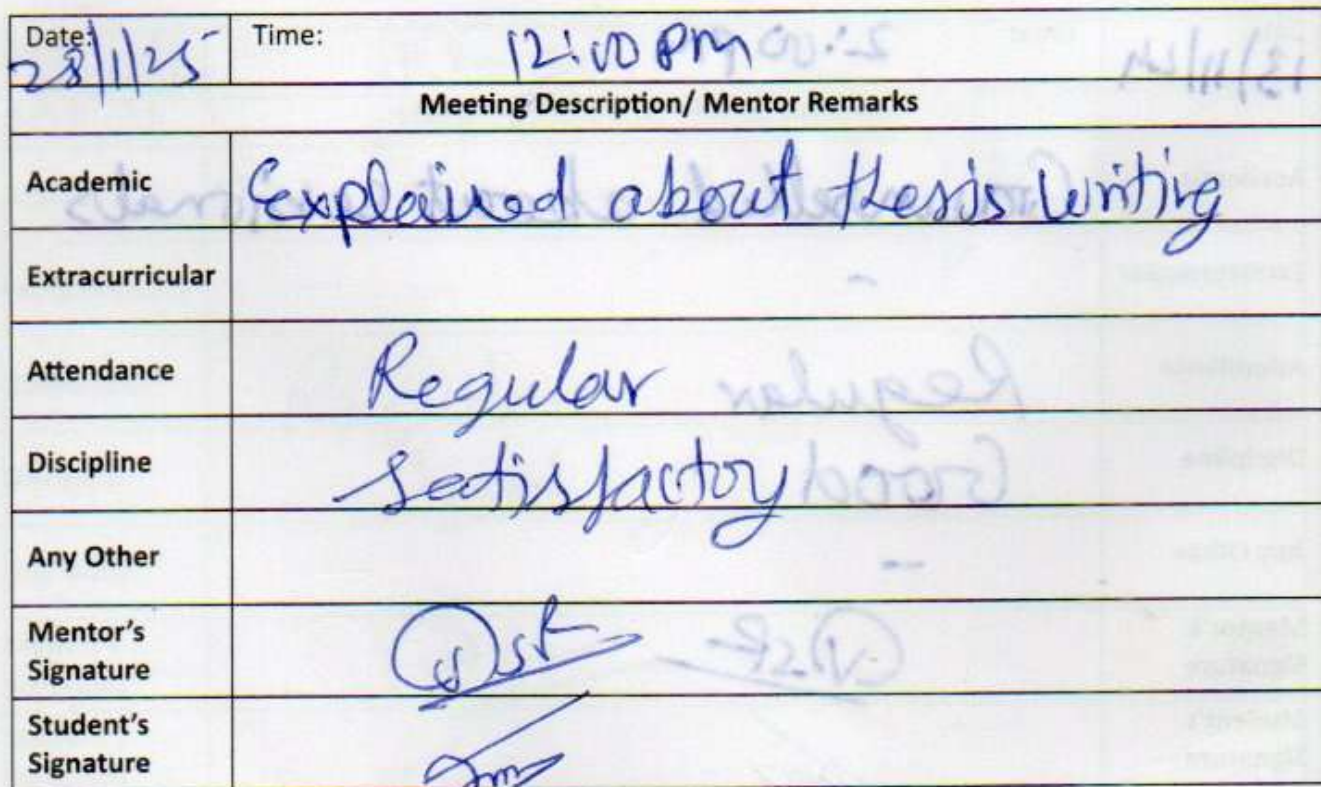 Date: Time: 12:00 PM
28/1/25
Meeting Description/ Mentor Remarks
Academic Explained about thesis writing
Extracurricular
Attendance Regular
Discipline Satisfactory
Any Other
Mentor's
Signature
Student's
Signature